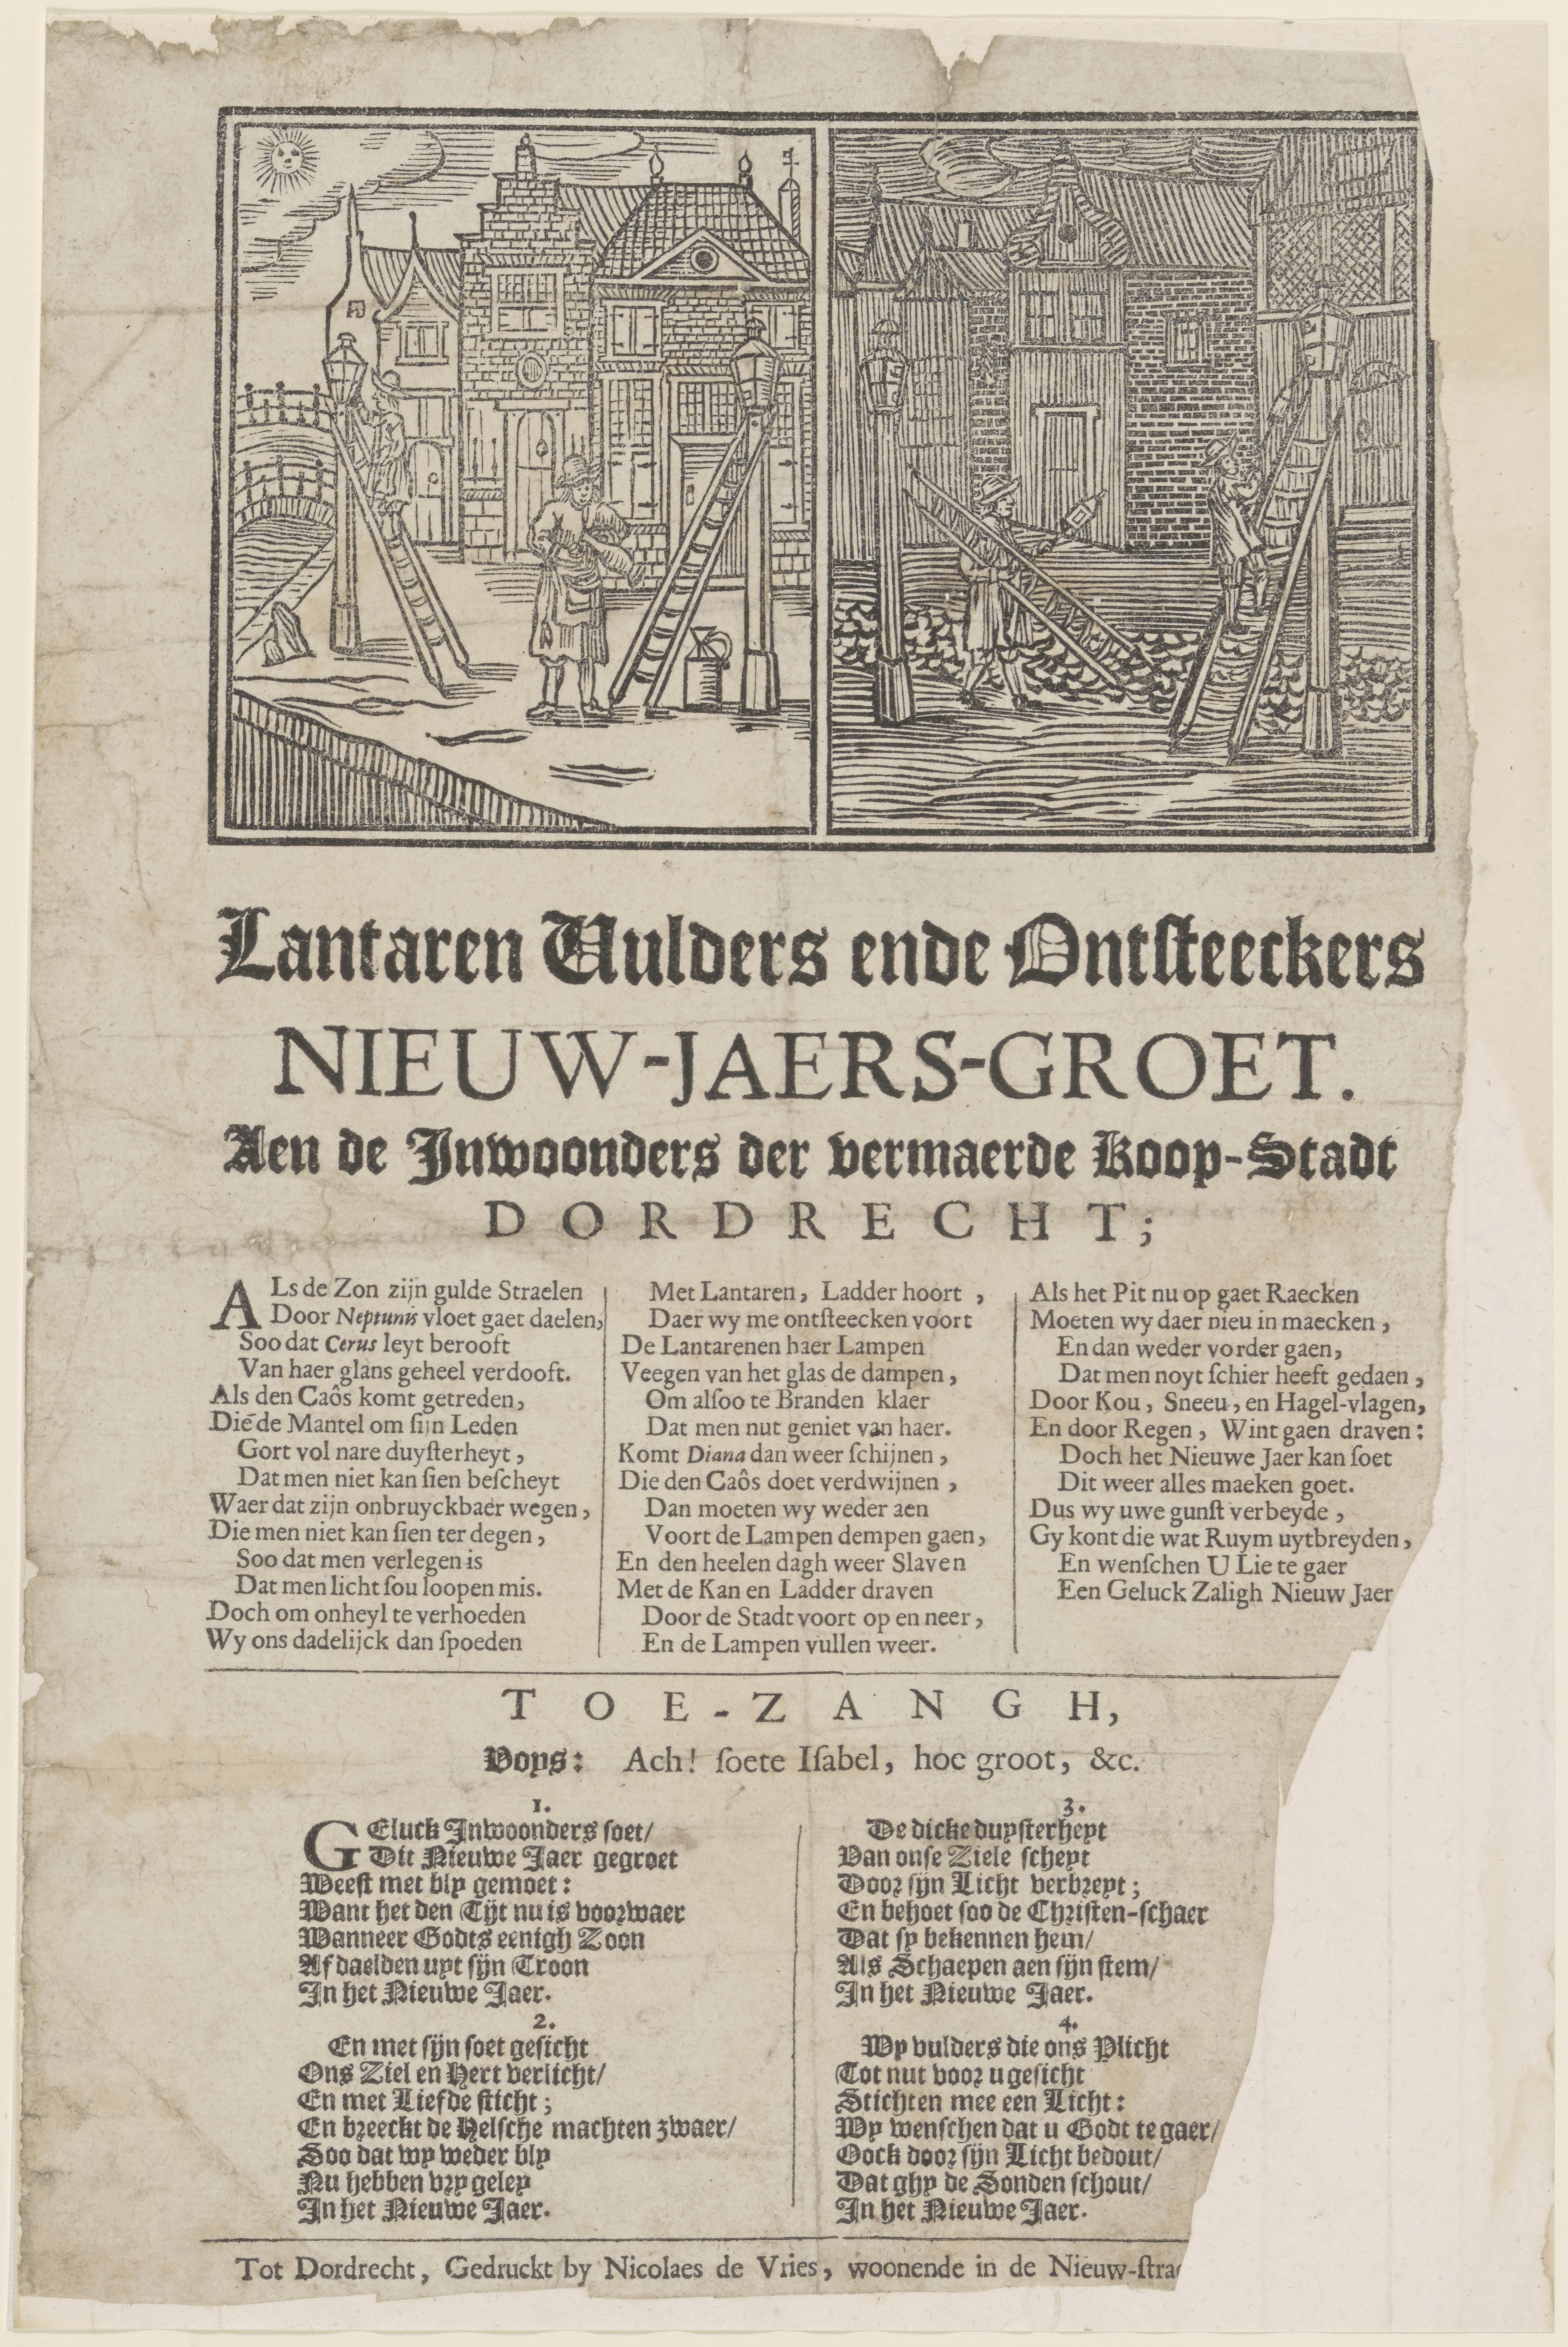 Lantaren Vulders ende Ontſteeckers
NIEUW-JAERS-GROET.
Aen de Inwoonders der vermaerde Koop-Stadt
DORDRECHT;
ALs de Zon zijn gulde Straelen
Door Neptunis vloet gaet daelen,
Soo dat Cerus leyt berooft
Van haer glans geheel verdooft.
Als den Caôs komt getreden,
Die de Mantel om ſijn Leden
Gort vol nare duyſterheyt,
Dat men niet kan ſien beſcheyt
Waer dat zijn onbruyckbaer wegen,
Die men niet kan ſien ter degen,
Soo dat men verlegen is
Dat men licht ſou loopen mis.
Doch om onheyl te verhoeden
Wy ons dadelijck dan ſpoeden
Met Lantaren, Ladder hoort,
Daer wy me ontſteecken voort
De Lantarenen haer Lampen
Veegen van het glas de dampen,
Om alſoo te Branden klaer
Dat men nut geniet van haer.
Komt Diana dan weer ſchijnen,
Die den Caôs doet verdwijnen,
Dan moeten wy weder aen
Voort de Lampen dempen gaen,
En den heelen dagh weer Slaven
Met de Kan en Ladder draven
Door de Stadt voort op en neer,
En de Lampen vullen weer.
Als het Pit nu op gaet Raecken
Moeten wy daer nieu in maecken,
En dan weder vorder gaen,
Dat men noyt ſchier heeft gedaen,
Door Kou, Sneeu, en Hagel-vlagen,
En door Regen, Wint gaen draven:
Doch het Nieuwe Jaer kan ſoet
Dit weer alles maeken goet.
Dus wy uwe gunſt verbeyde,
Gy kont die wat Ruym uytbreyden,
En wenſchen U Lie te gaer
Een Geluck Zaligh Nieuw Jaer
TOE-ZANGH,
Voys: Ach! ſoete Iſabel, hoe groot, &c.
1.
GEluck Inwoonders ſoet/
Dit Nieuwe Jaer gegroet
Weeſt met bly gemoet:
Want het den Tijt nu is voorwaer
Wanneer Godts eenigh Zoon
Af daelden uyt ſijn Troon
In het Nieuwe Jaer.
2.
En met ſijn ſoet geſicht
Ons Ziel en Hert verlicht/
En met Liefde ſticht;
En breeckt de Helſche machten zwaer/
Soo dat wy weder bly
Nu hebben vry geley
In het Nieuwe Jaer.
3.
De dicke duyſterheyt
Van onſe Ziele ſcheyt
Door ſijn Licht verbreyt;
En behoet ſoo de Chriſten-ſchaer
Dat ſy bekennen hem/
Als Schaepen aen ſijn ſtem/
In het Nieuwe Jaer.
4.
Wy vulders die ons Plicht
Tot nut voor u geſicht
Stichten mee een Licht:
Wy wenſchen dat u Godt te gaer/
Oock door ſijn Licht bedout/
Dat ghy de Sonden ſchout/
In het Nieuwe Jaer.
Tot Dordrecht, Gedruckt by Nicolaes de Vries, woonende in de Nieuw-ſtra